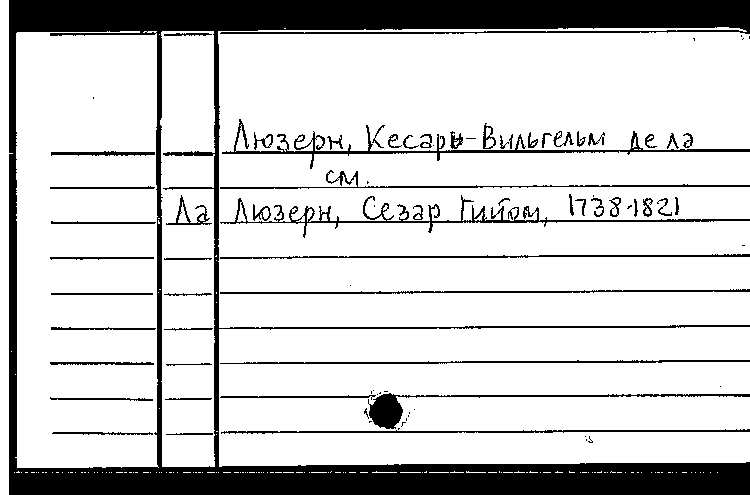 Люзерн, Кесарь-Вильгельм де ла
см.
Ла Люзерн, Сезар Гийом, 1738-1821